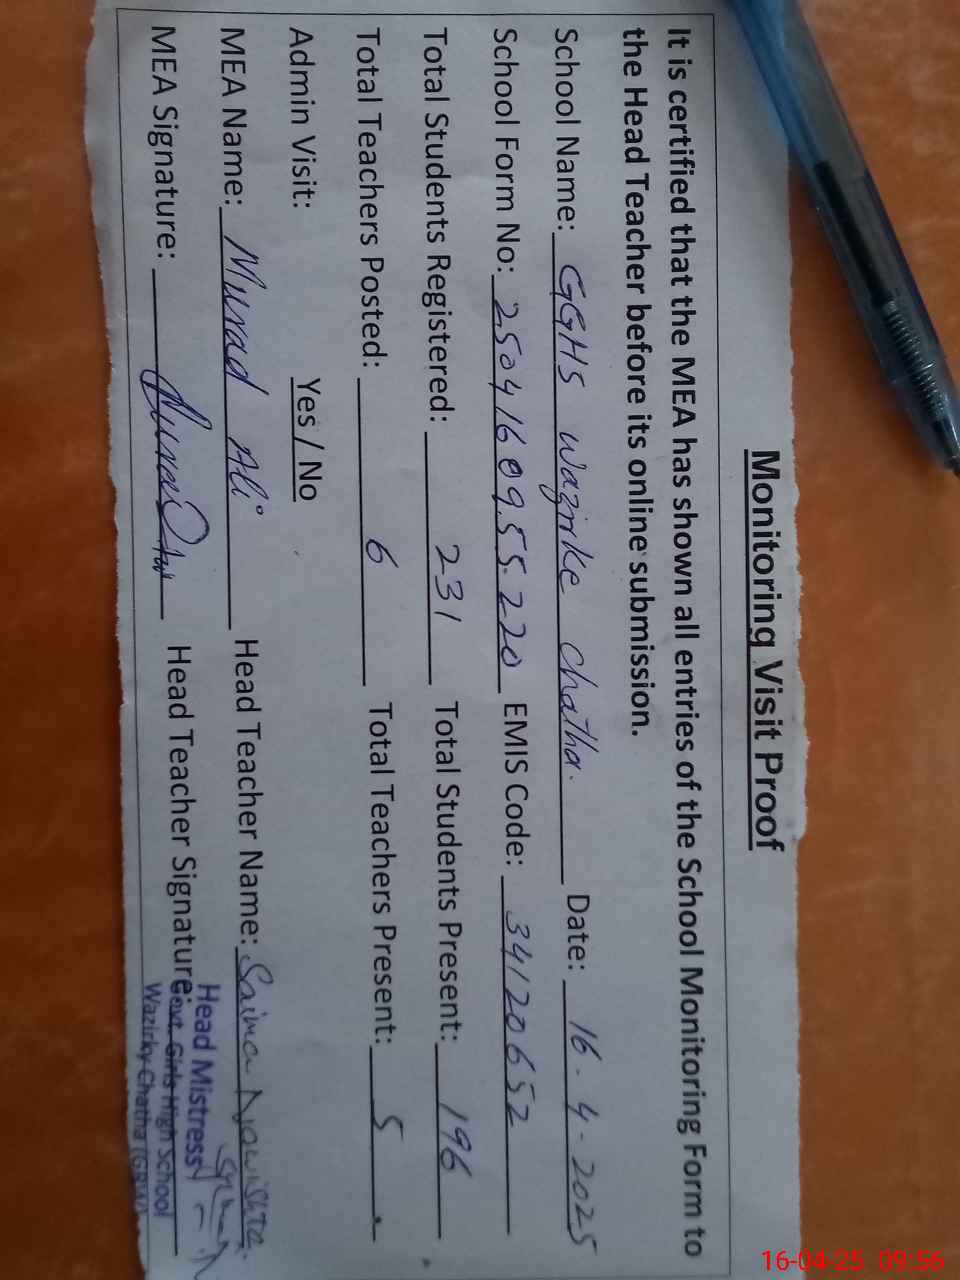 Monitoring Visit Proof
It is certified that the MEA has shown all entries of the School Monitoring Form to
the Head Teacher before its online submission.
School Name: GGHS Wazirke Chatha. Date: 16-4-2025
School Form No: 2504160955220 EMIS Code: 34120652
Total Students Registered: 231 Total Students Present: 196
Total Teachers Posted: 6 Total Teachers Present: 5
Admin Visit: Yes / No
MEA Name: Murad Ali Head Teacher Name: Saima
MEA Signature: Head Teacher Signature:
Head Mistress
Govt. Girls High School
Wazirky Chatha (GRW)
16-04-25 09:56